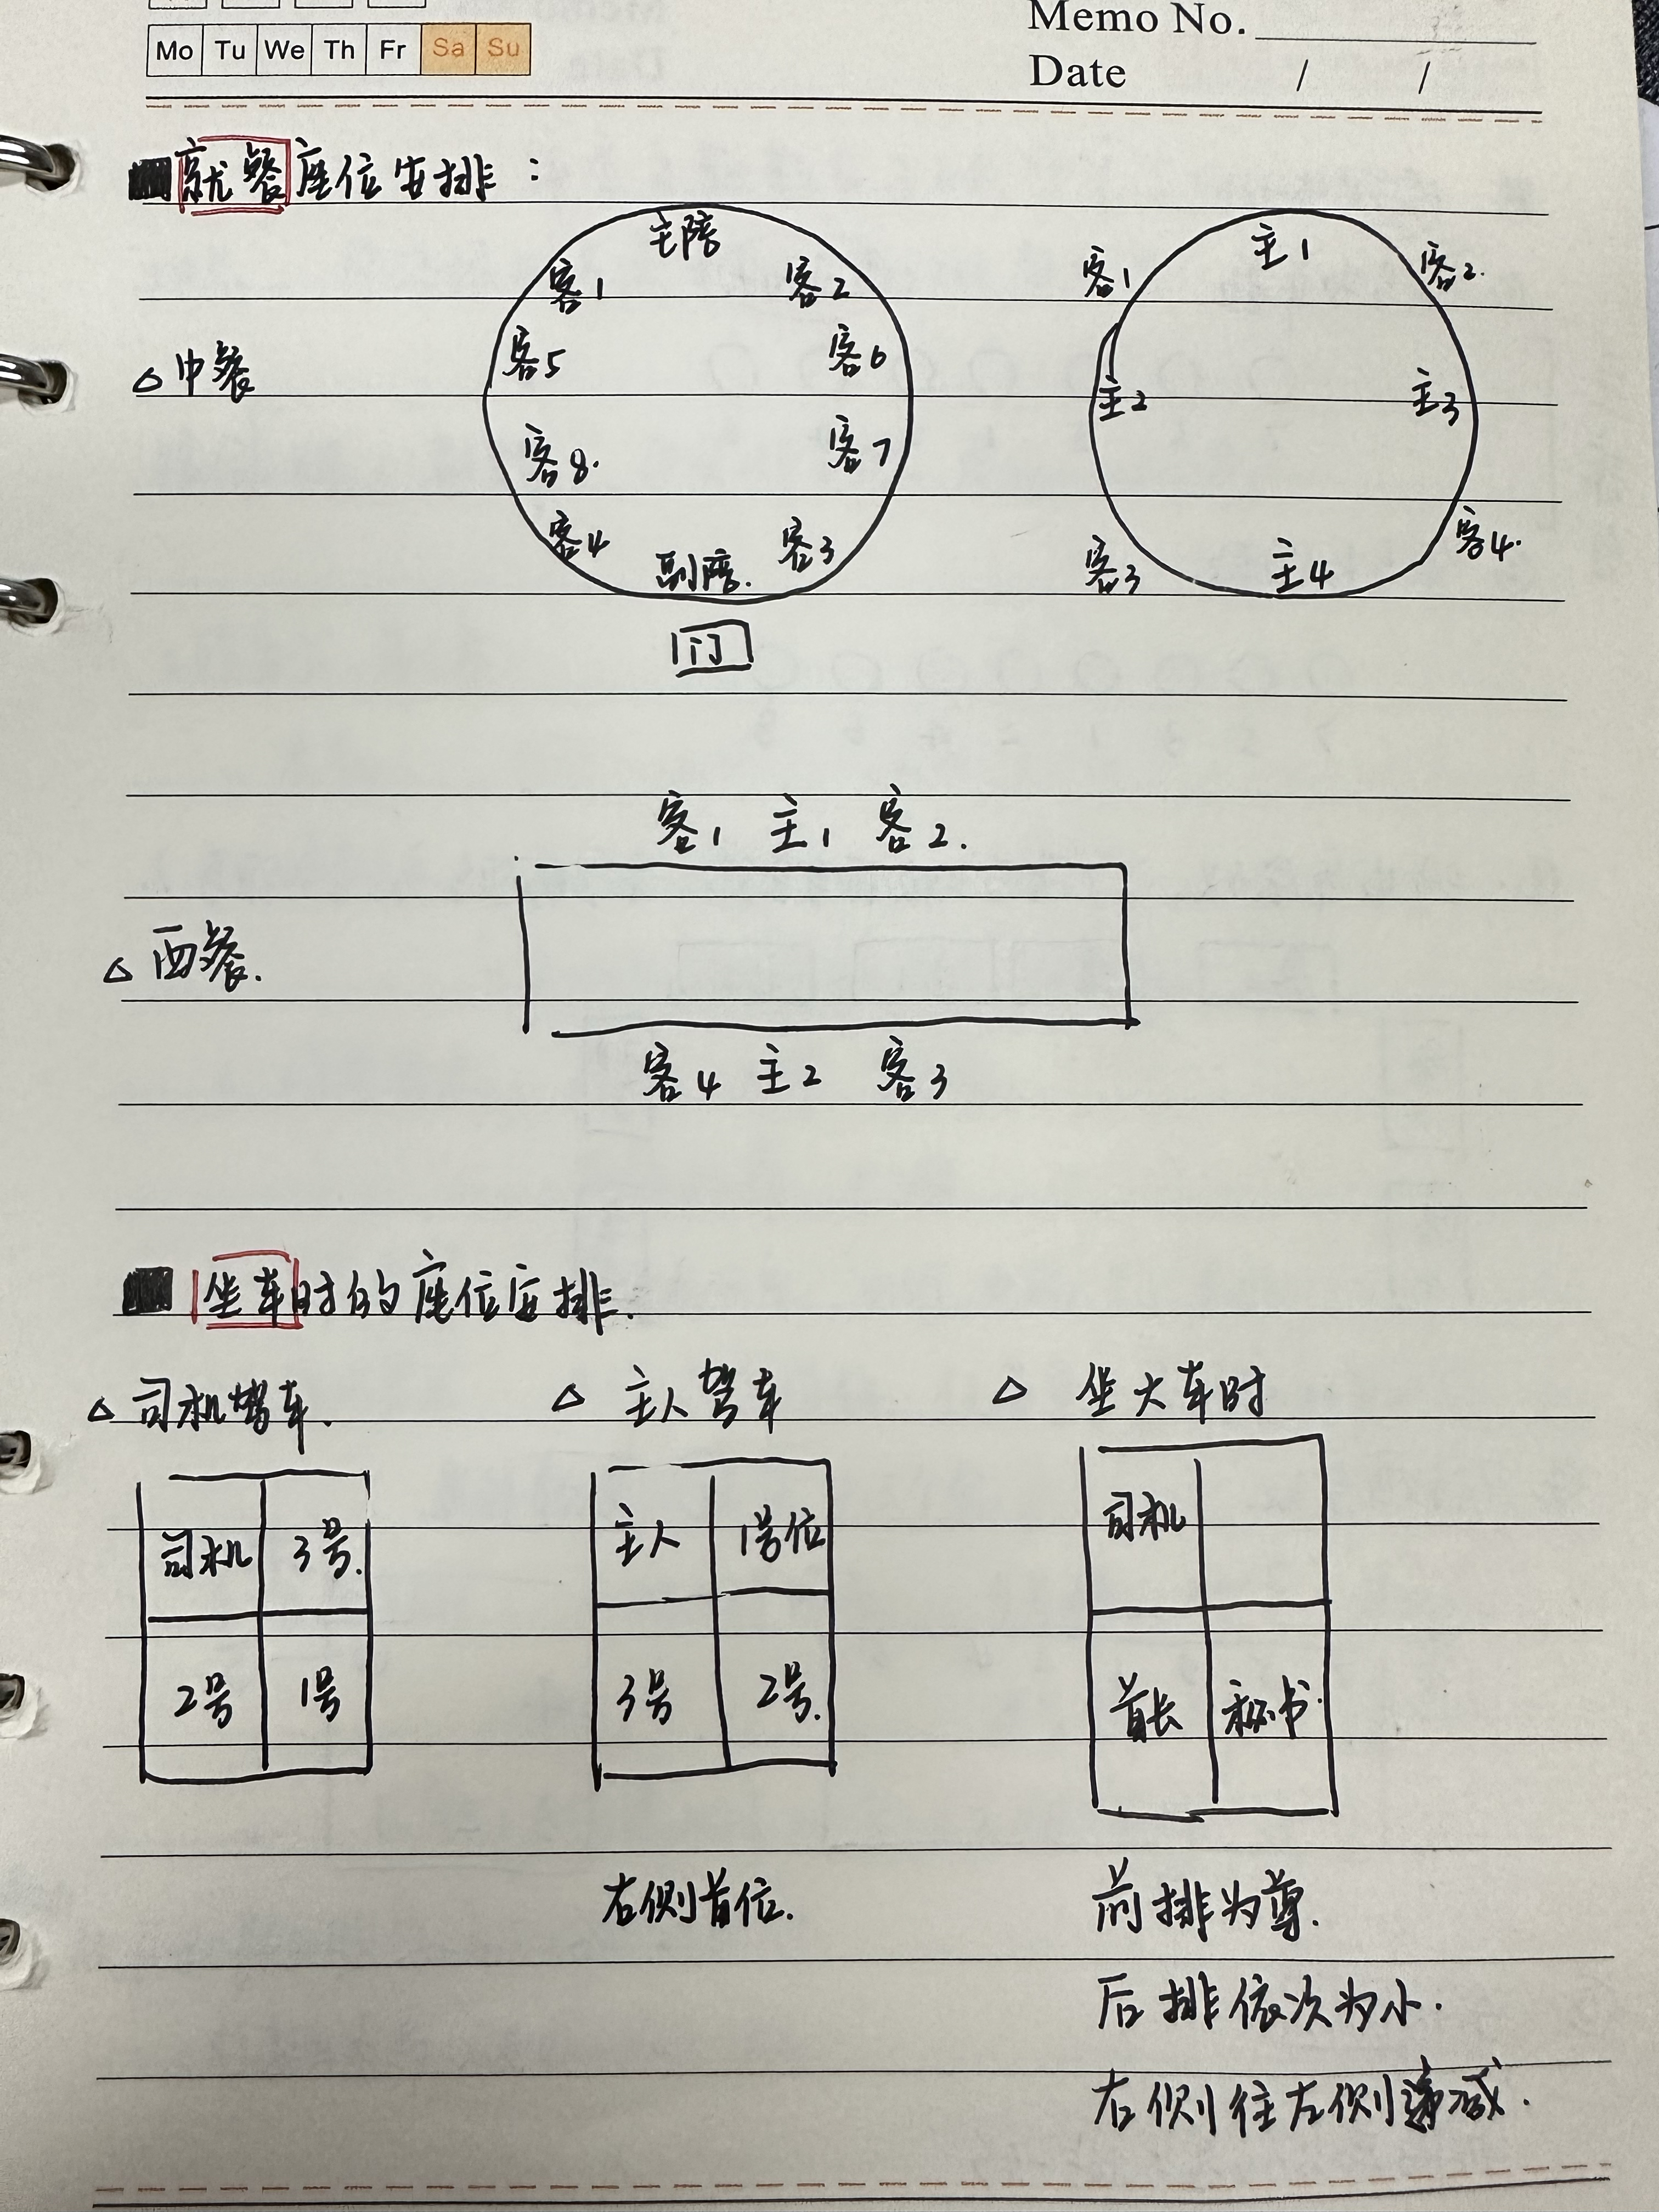 Memo No.
Mo Tu We Th Fr Sa Su
Date / /
就餐座位安排：
主陪
客1 客2
客5 客6
客8. 客7
客4 客3
副陪.
门
△中餐
主1
客1 客2.
主2 主3
客3 客4.
主4
客1 主1 客2.
△西餐.
客4 主2 客3
坐车时的座位安排.
△司机驾车.
司机 3号.
2号 1号
△主人驾车
主人 1号位
3号 2号.
右侧首位.
△坐大车时
司机
首长 秘书.
前排为尊.
后排依次为小.
右侧往左侧递减.